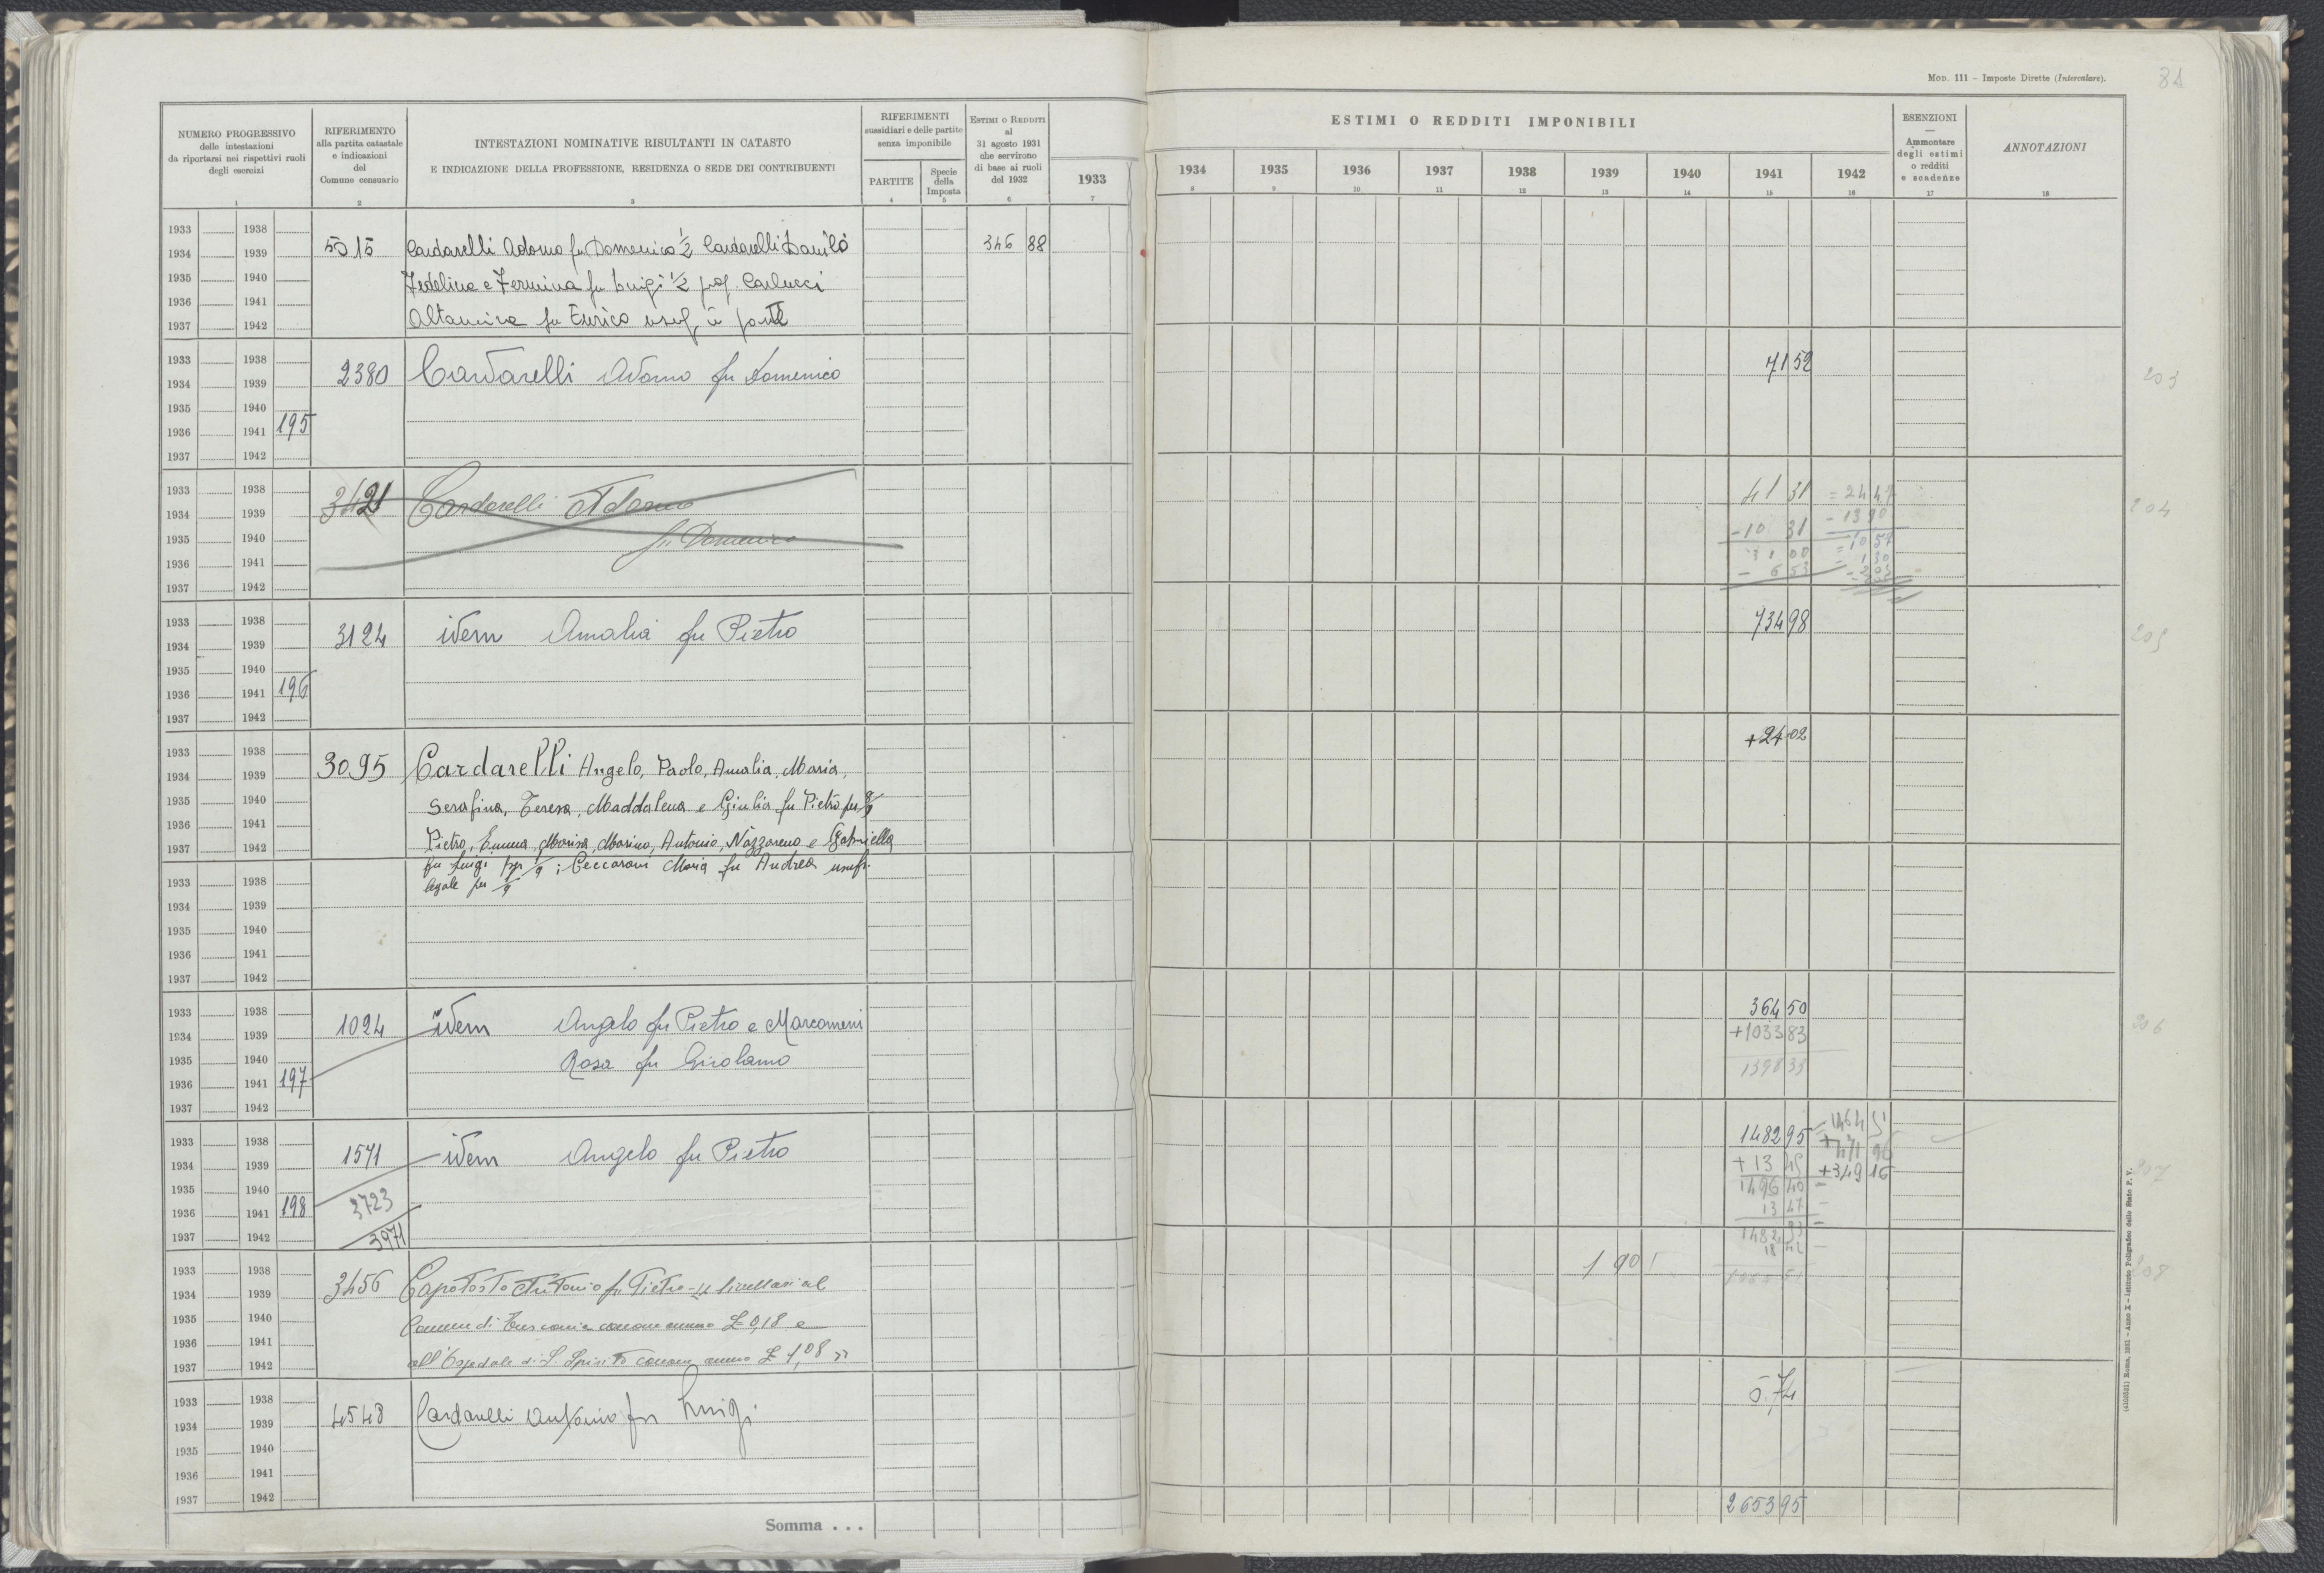 Mod. 111 - Imposte Dirette (Intercalare).
NUMERO PROGRESSIVO
delle intestazioni
da riportarsi nei rispettivi ruoli
degli esercizi
RIFERIMENTO
alla partita catastale
e indicazioni
del
Comune censuario
INTESTAZIONI NOMINATIVE RISULTANTI IN CATASTO
E INDICAZIONE DELLA PROFESSIONE, RESIDENZA O SEDE DEI CONTRIBUENTI
RIFERIMENTI
sussidiari e delle partite
senza imponibile
PARTITE
Specie
della
Imposta
ESTIMI O REDDITI
al
31 agosto 1931
che servirono
di base ai ruoli
del 1932
ESTIMI O REDDITI IMPONIBILI
1933 1934 1935 1936 1937 1938 1939 1940 1941 1942
ESENZIONI
Ammontare
degli estimi
o redditi
e scadenze
ANNOTAZIONI
1 2 3 4 5 6 7 8 9 10 11 12 13 14 15 16 17 18
1933 1938
1934 1939 5015 Cardarelli Adorno fu Domenico 1/2 Cardarelli Danilo 346 88
1935 1940 Fedelina e Fermina fu Luigi 1/2 prop. Carlucci
1936 1941 Altamira fu Enrico usuf. in parte
1937 1942
1933 1938
1934 1939 2380 Cardarelli Adorno fu Domenico 71 52 203
1935 1940
1936 1941 195
1937 1942
1933 1938 41 31 = 24 47
1934 1939 3421 Cardarelli Adorno 204
1935 1940 fu Domenico - 10 31 - 13 90
1936 1941 31 00 = 10 57
1937 1942 - 6 53
1933 1938
1934 1939 3124 idem Amalia fu Pietro 734 98 205
1935 1940
1936 1941 196
1937 1942
1933 1938 + 24 02
1934 1939 3095 Cardarelli Angelo, Paolo, Amalia, Maria,
1935 1940 Serafina, Teresa, Maddalena e Giulia fu Pietro per 8/9
1936 1941
1937 1942 Pietro, Emma, Marisa, Marino, Antonio, Nazzareno e Gabriella
fu Luigi per 1/9; Ceccaroni Maria fu Andrea usufr.
1933 1938 legale per 1/9
1934 1939
1935 1940
1936 1941
1937 1942
1933 1938 364 50
1934 1939 1024 idem Angelo fu Pietro e Marcomeni + 1033 83 206
1935 1940 Rosa fu Girolamo 1398 33
1936 1941 197
1937 1942
1933 1938 1482 95 = 1464 51
1934 1939 1571 idem Angelo fu Pietro + 13 45 + 471 96 207
1935 1940 3723 1496 40 + 349 16
1936 1941 198 13 47
1937 1942 3971 1482 93
18 42
1933 1938 1 90
1934 1939 3456 Capotosto Antonio fu Pietro livellari al 208
1935 1940 Comune di Tuscania canone annuo £ 0,18 e
1936 1941
1937 1942 all'Ospedale di S. Spirito canone annuo £ 1,08
1933 1938 0.74
1934 1939 4548 Cardarelli Antonio fu Luigi
1935 1940
1936 1941
1937 1942
Somma . . . 2653 95
Roma, 1931 - Anno X - Istituto Poligrafico dello Stato P. V.